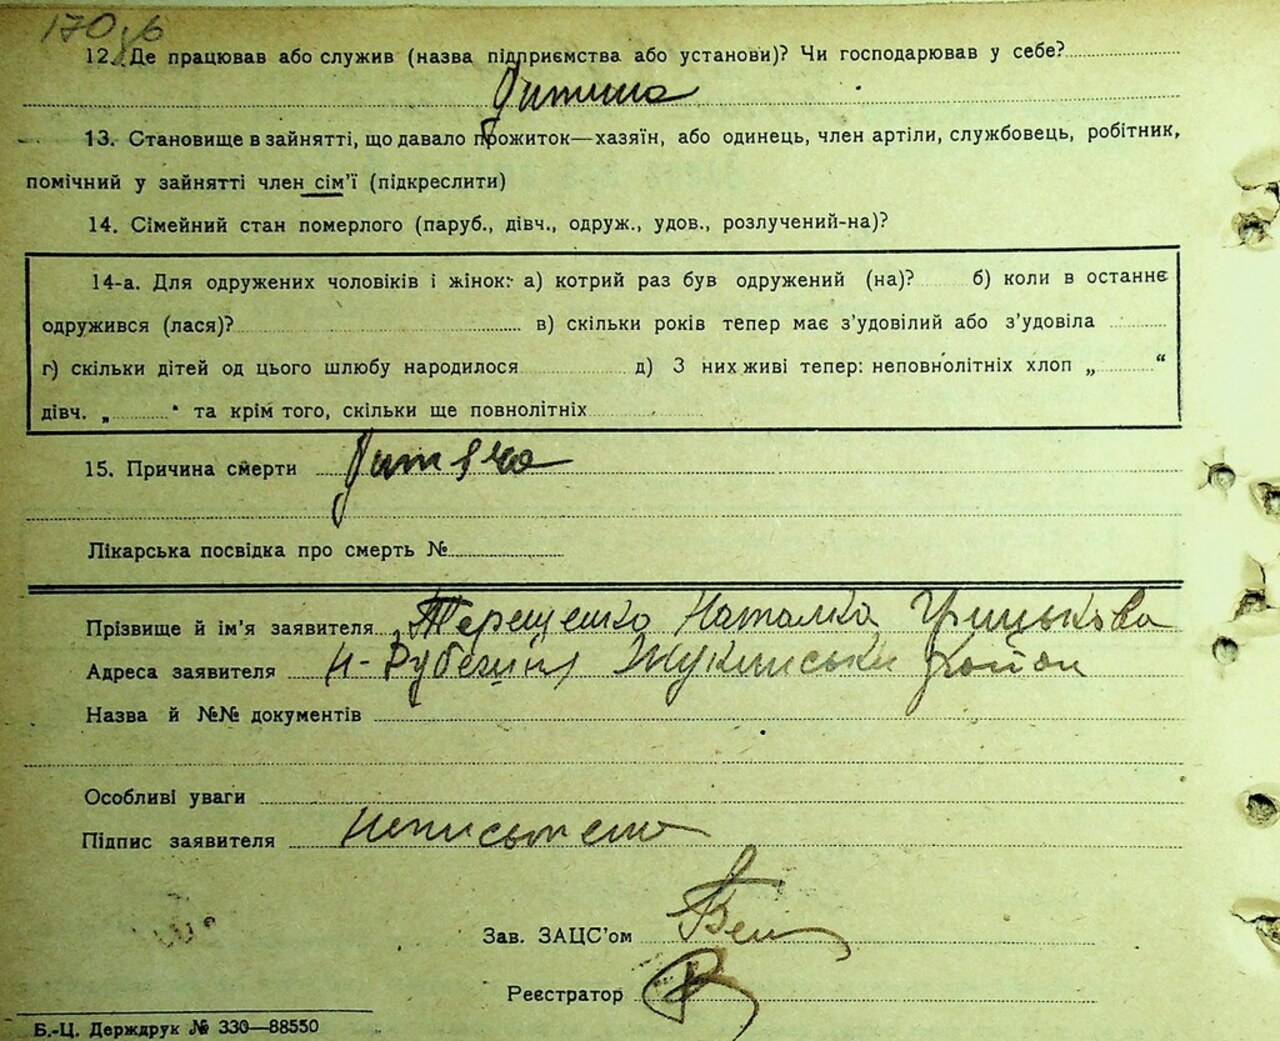 170зб
12. Де працював або служив (назва підприємства або установи)? Чи господарював у себе?
Дитина
13. Становище в зайнятті, що давало прожиток—хазяїн, або одинець, член артіли, службовець, робітник,
помічний у зайнятті член сім’ї (підкреслити)
14. Сімейний стан померлого (паруб., дівч., одруж., удов., розлучений-на)?
14-а. Для одружених чоловіків і жінок: а) котрий раз був одружений (на)? б) коли в останнє
одружився (лася)? в) скільки років тепер має з’удовілий або з’удовіла
г) скільки дітей од цього шлюбу народилося д) З них живі тепер: неповнолітніх хлоп „ “
дівч. „ “ та крім того, скільки ще повнолітніх
15. Причина смерти Дитяча
Лікарська посвідка про смерть №
Прізвище й ім’я заявителя Терещенко Наталка Грицькова
Адреса заявителя Жукинськи район
Назва й №№ документів
Особливі уваги
Підпис заявителя Неписьмена
Зав. ЗАЦС’ом
Реєстратор
Б.-Ц. Держдрук № 330—88550